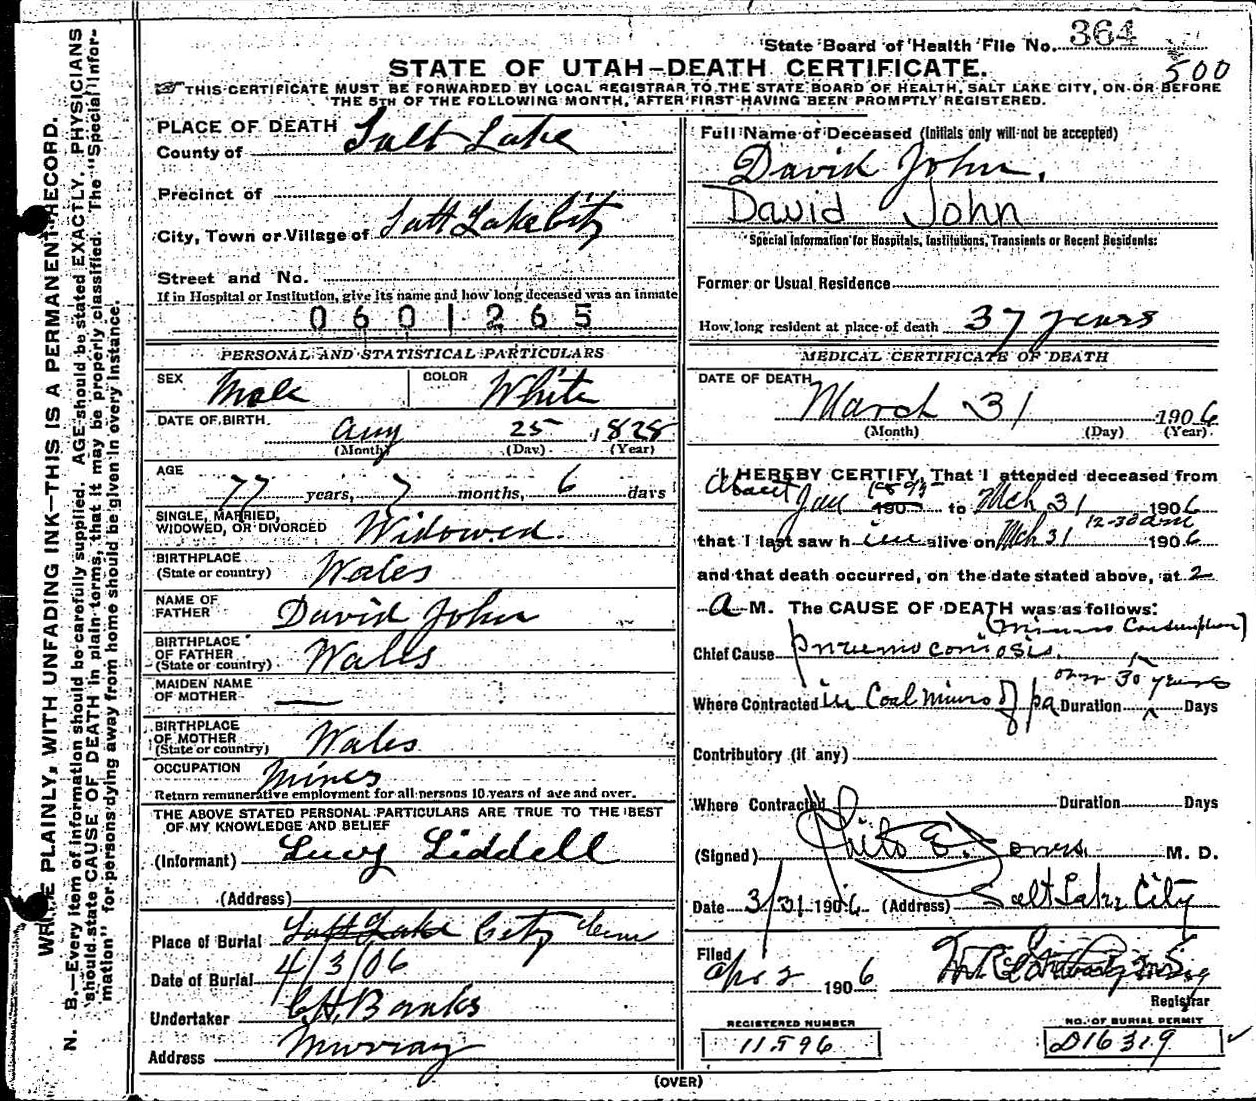 State Board of Health File No. 364
500
STATE OF UTAH—DEATH CERTIFICATE.
THIS CERTIFICATE MUST BE FORWARDED BY LOCAL REGISTRAR TO THE STATE BOARD OF HEALTH, SALT LAKE CITY, ON OR BEFORE
THE 5TH OF THE FOLLOWING MONTH, AFTER FIRST HAVING BEEN PROMPTLY REGISTERED.
WRITE PLAINLY, WITH UNFADING INK—THIS IS A PERMANENT RECORD.
N. B.—Every item of information should be carefully supplied. AGE should be stated EXACTLY. PHYSICIANS
should state CAUSE OF DEATH in plain terms, that it may be properly classified. The "Special Infor-
mation" for persons dying away from home should be given in every instance.
PLACE OF DEATH
County of Salt Lake
Precinct of
City, Town or Village of Salt Lake City
Street and No.
If in Hospital or Institution, give its name and how long deceased was an inmate
0601265
PERSONAL AND STATISTICAL PARTICULARS
SEX Male COLOR White
DATE OF BIRTH Aug 25 1828
(Month) (Day) (Year)
AGE 77 years, 7 months, 6 days
SINGLE, MARRIED,
WIDOWED, OR DIVORCED Widowed.
BIRTHPLACE
(State or country) Wales
NAME OF
FATHER David John
BIRTHPLACE
OF FATHER
(State or country) Wales
MAIDEN NAME
OF MOTHER —
BIRTHPLACE
OF MOTHER
(State or country) Wales
OCCUPATION Miner
Return remunerative employment for all persons 10 years of age and over.
THE ABOVE STATED PERSONAL PARTICULARS ARE TRUE TO THE BEST
OF MY KNOWLEDGE AND BELIEF
(Informant) Lucy Liddell
(Address)
Place of Burial Salt Lake City Cem
Date of Burial 4/3/06
Undertaker Banks
Address Murray
Full Name of Deceased (Initials only will not be accepted)
David John.
David John
Special Information for Hospitals, Institutions, Transients or Recent Residents:
Former or Usual Residence
How long resident at place of death 37 years
MEDICAL CERTIFICATE OF DEATH
DATE OF DEATH
March 31 1906
(Month) (Day) (Year)
I HEREBY CERTIFY, That I attended deceased from
About Jan 190 to Mch 31 1906
12-30 am
that I last saw him alive on Mch 31 1906
and that death occurred, on the date stated above, at 2
a M. The CAUSE OF DEATH was as follows:
(Miners Consumption)
Chief Cause pneumoconiosis.
over 30 years
Where Contracted in Coal Mines of Pa Duration Days
Contributory (if any)
Where Contracted Duration Days
(Signed) Jones M. D.
Date 3/31 1906 (Address) Salt Lake City
Filed Apr 2 1906
Registrar
REGISTERED NUMBER
11596
NO. OF BURIAL PERMIT
D16319
(OVER)